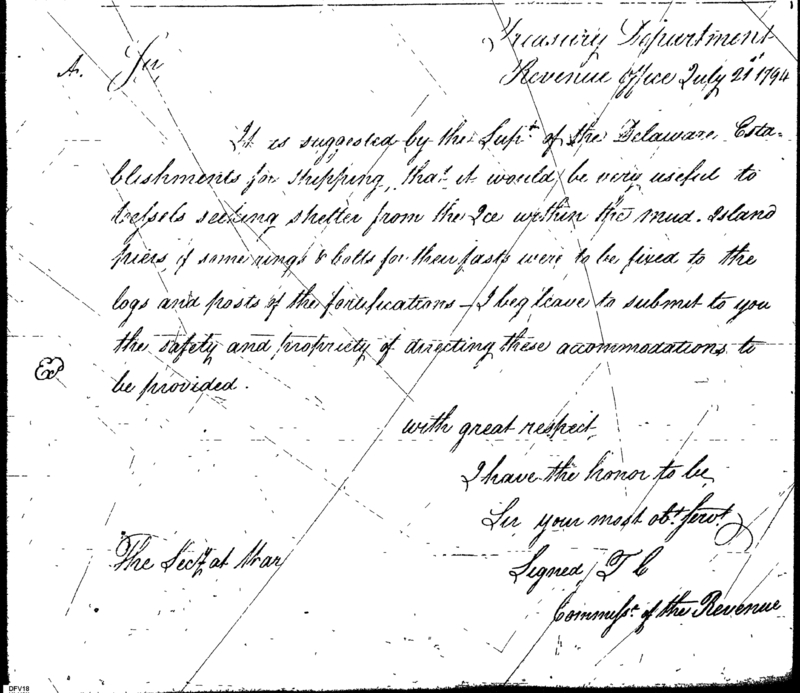 Treasury Department
A. Sir
Revenue Office July 21st 1794
It is suggested by the Supt of the Delaware Esta-
blishments for Shipping, that it would be very useful to
Vessels seeking shelter from the Ice within the mud-Island
piers if some rings & bolts for their fasts were to be fixed to the
logs and posts of the fortifications – I beg leave to submit to you
the safety and propriety of directing these accommodations to
be provided.
Ex
with great respect,
I have the honor to be,
Sir your most obt. Servt.
The Secy at War
Signed T C
Commissr. of the Revenue
DFV18